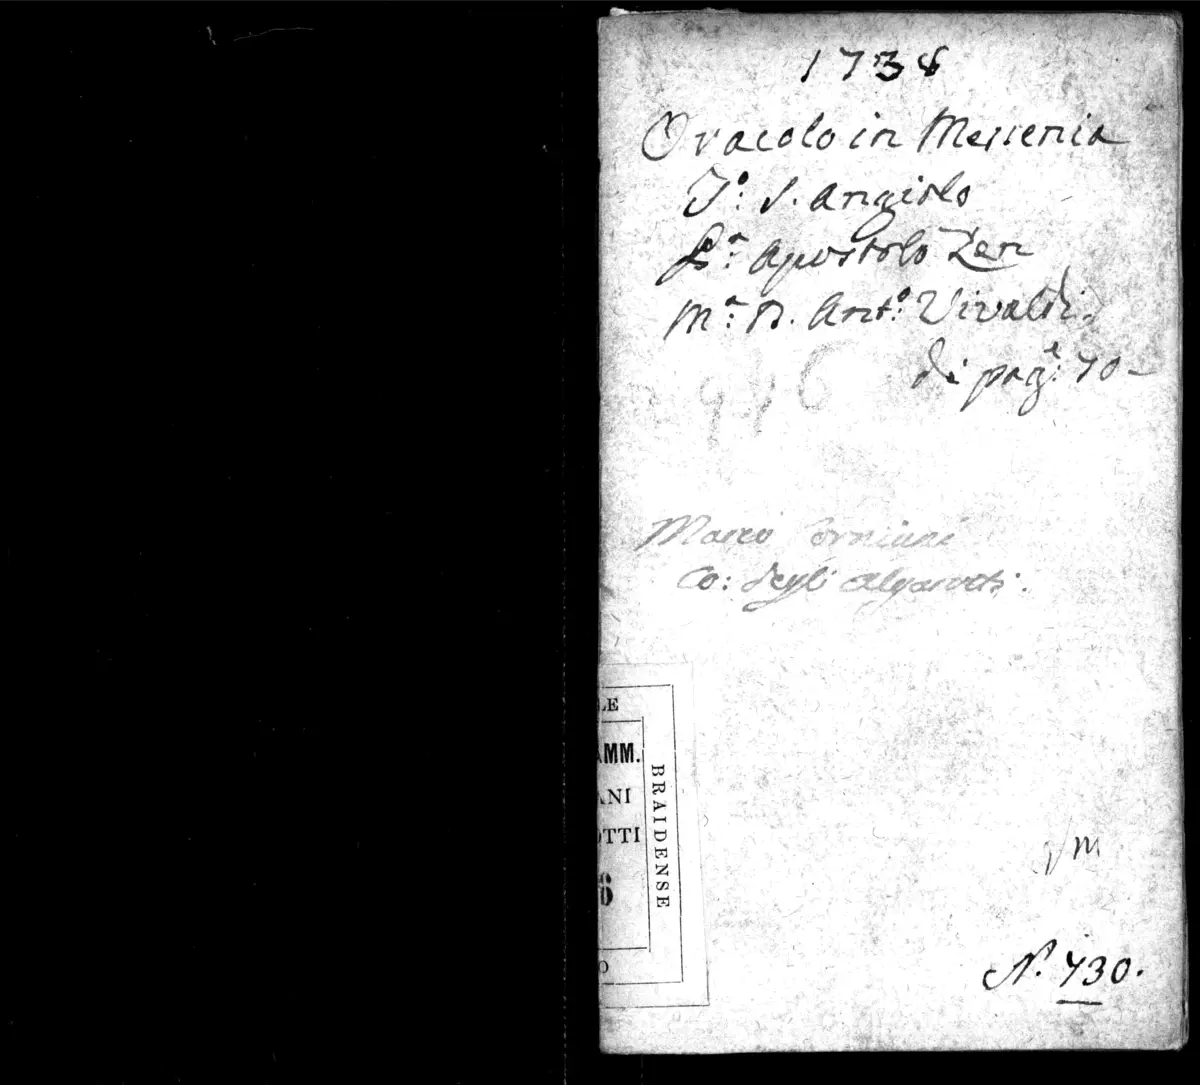 1738
Oracolo in Messenia
T.º: S. Angiolo
P.ª: Apostolo Zen
M.ª: D. Ant.º: Vivaldi.
di pag.e: 70-
Marco Corniani
Co: degli Algarotti.
LE
AMM.
ANI
OTTI
6
O
BRAIDENSE
N.º 730.